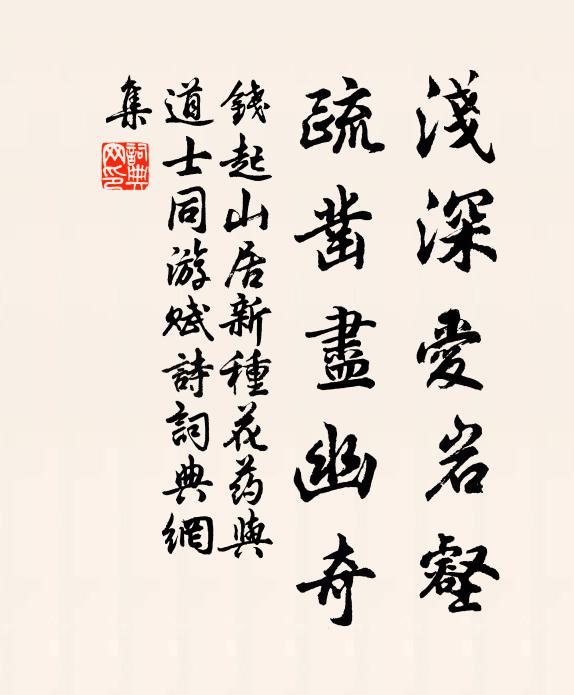 淺深愛岩壑
疏鑿盡幽奇
錢起山居新種花药與
道士同游赋詩詞典網
集
詞典网印